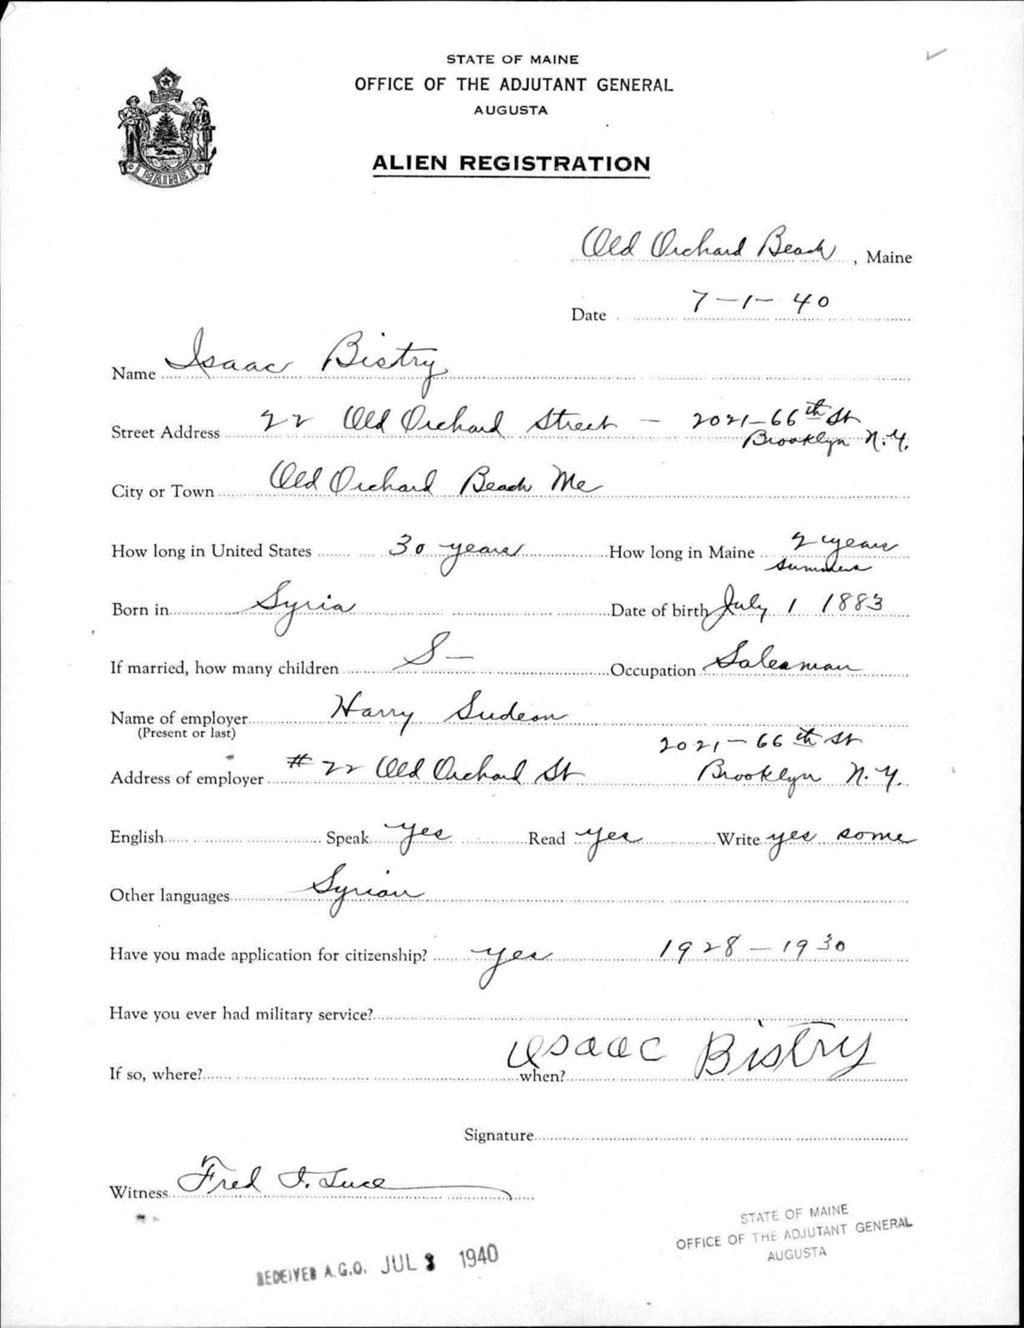 STATE OF MAINE
OFFICE OF THE ADJUTANT GENERAL
AUGUSTA
ALIEN REGISTRATION
MAINE
Old Orchard Beach, Maine
Date 7-1-40
Name Isaac Bistry
Street Address 22 Old Orchard Street - 2021-66th St
Brooklyn N.Y.
City or Town Old Orchard Beach Me
How long in United States 30 years How long in Maine 2 years
summers
Born in Syria Date of birth July 1 1883
If married, how many children S- Occupation Salesman
Name of employer Harry
(Present or last)
2021-66th St
Address of employer #22 Old Orchard St Brooklyn N.Y.
English Speak yes Read yes Write yes some
Other languages Syrian
Have you made application for citizenship? yes 1928-1930
Have you ever had military service?
Isaac Bistry
If so, where? when?
Signature
Witness Fred I. Luce
STATE OF MAINE
OFFICE OF THE ADJUTANT GENERAL
AUGUSTA
RECEIVED A.G.O. JUL 3 1940